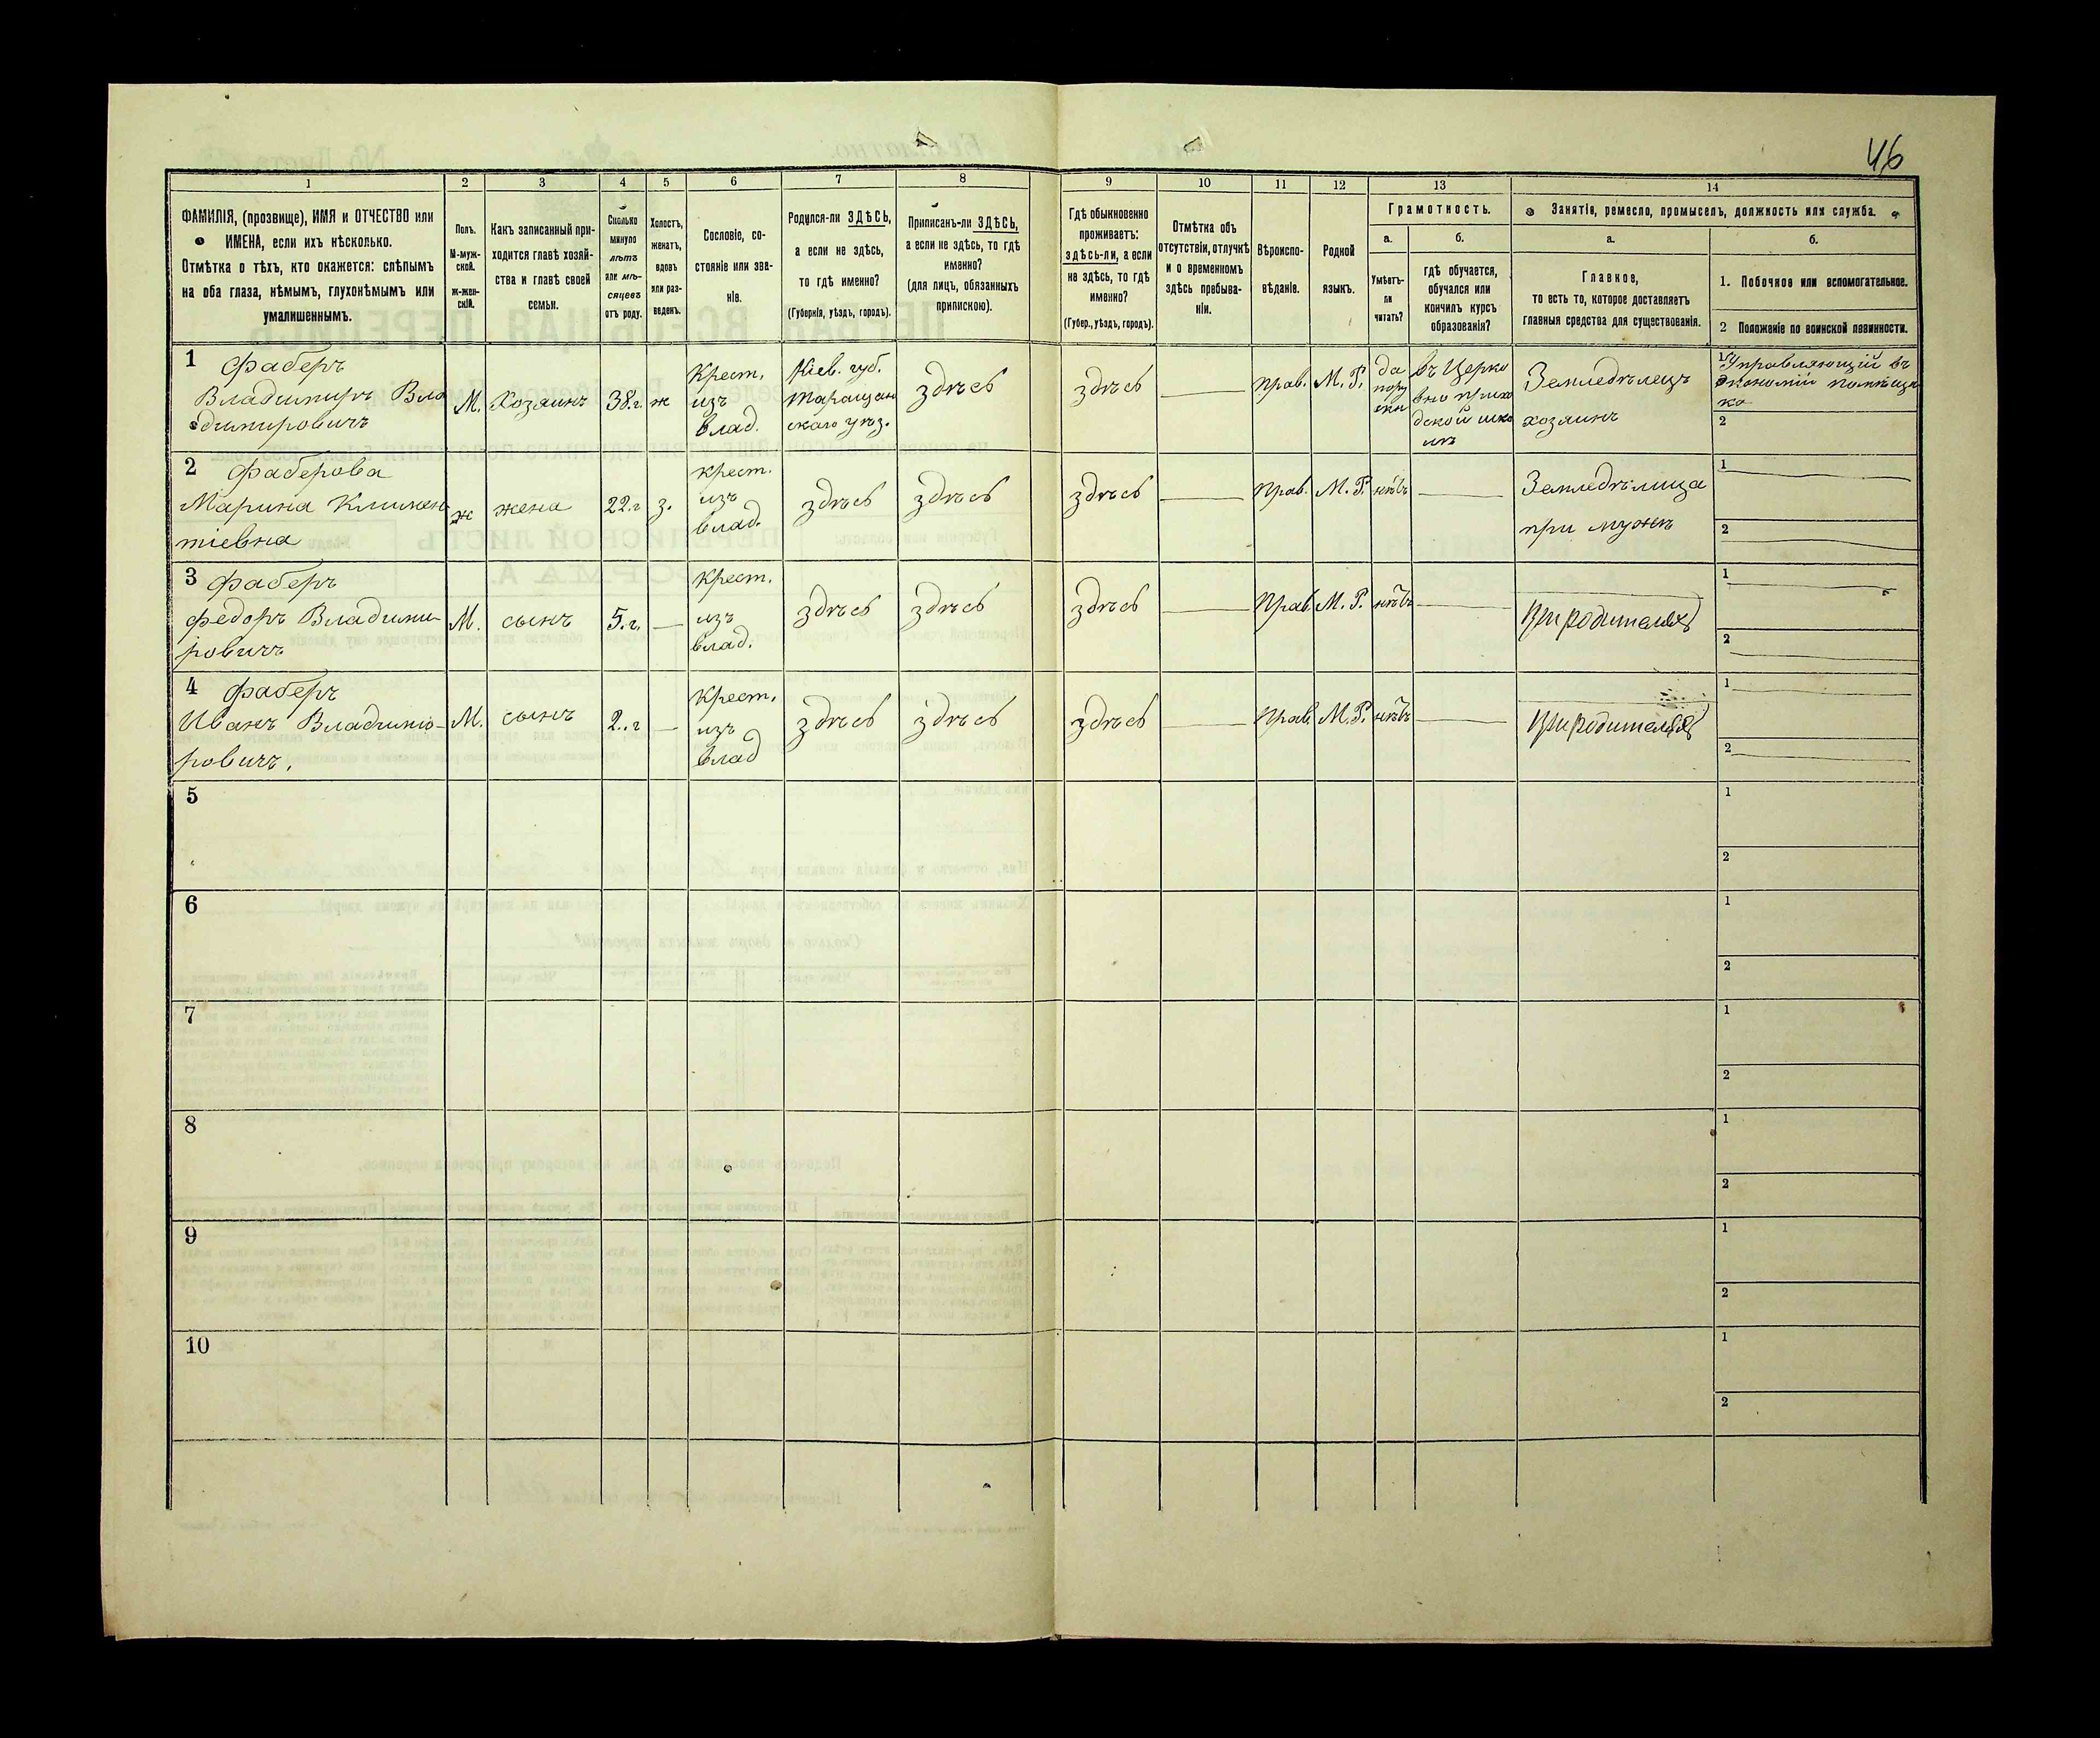 46
1 2 3 4 5 6 7 8 9 10 11 12 13 14
ФАМИЛІЯ, (прозвище), ИМЯ и ОТЧЕСТВО или
ИМЕНА, если ихъ нѣсколько.
Отмѣтка о тѣхъ, кто окажется: слѣпымъ
на оба глаза, нѣмымъ, глухонѣмымъ или
умалишеннымъ.
Полъ.
М-муж-
ской.
ж-жен-
скій.
Какъ записанный при-
ходится главѣ хозяй-
ства и главѣ своей
семьи.
Сколько
минуло
лѣтъ
или мѣ-
сяцевъ
отъ роду.
Холостъ,
женатъ,
вдовъ
или раз-
веденъ.
Сословіе, со-
стояніе или зва-
ніе.
Родился-ли ЗДѢСЬ,
а если не здѣсь,
то гдѣ именно?
(Губернія, уѣздъ, городъ).
Приписанъ-ли ЗДѢСЬ,
а если не здѣсь, то гдѣ
именно?
(для лицъ, обязанныхъ
припискою).
Гдѣ обыкновенно
проживаетъ:
здѣсь-ли, а если
не здѣсь, то гдѣ
именно?
(Губер., уѣздъ, городъ).
Отмѣтка объ
отсутствіи, отлучкѣ
и о временномъ
здѣсь пребыва-
ніи.
Вѣроиспо-
вѣданіе.
Родной
языкъ.
Грамотность.
а.
Умѣетъ-
ли
читать?
б.
гдѣ обучается,
обучался или
кончилъ курсъ
образованія?
Занятіе, ремесло, промыселъ, должность или служба.
а.
Главное,
то есть то, которое доставляетъ
главныя средства для существованія.
б.
1. Побочное или вспомогательное.
2 Положеніе по воинской повинности.
1 Фаберъ
Владимиръ Вла
димировичъ
М.
Хозяинъ
38.г.
ж
Крест.
изъ
влад.
Кіев. губ.
Таращан
скаго уѣз.
здѣсь
здѣсь
прав.
М. Р.
да
по ру
ски
въ Церко
вно прихо
дской шко
лѣ
Земледѣлецъ
хозяинъ
1 Управляющій въ
экономіи помѣщи
ка
2
2 Фаберова
Марина Климен
тіевна
ж
жена
22.г
з.
крест.
изъ
влад.
здѣсь
здѣсь
здѣсь
Прав.
М. Р.
нѣтъ
Земледѣлица
при мужѣ
1
2
3 Фаберъ
Федоръ Владими-
ровичъ
М.
сынъ
5.г.
Крест.
изъ
влад.
здѣсь
здѣсь
здѣсь
Прав.
М. Р.
нѣтъ
При родителях
1
2
4 Фаберъ
Иванъ Владими-
ровичъ.
М.
сынъ
2..г
Крест.
изъ
влад
здѣсь
здѣсь
здѣсь
Прав.
М. Р.
нѣтъ
При родителях
1
2
5
1
2
6
1
2
7
1
2
8
1
2
9
1
2
10
1
2